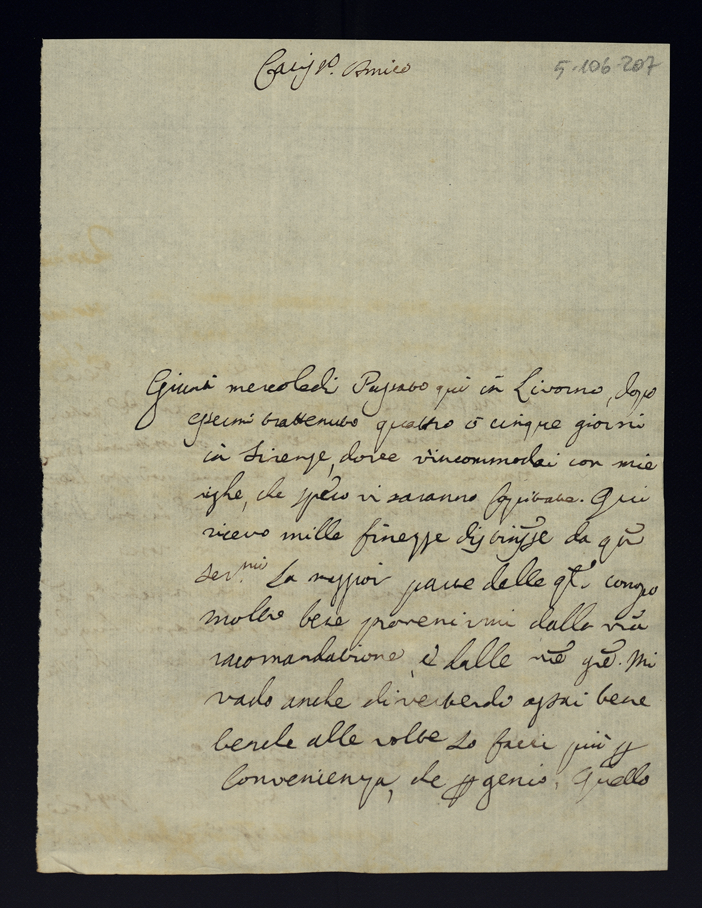 Cariss.º Amico
5-106-207
Giunsi mercoledi Passato qui in Livorno, dopo
essermi trattenuto quattro ò cinque giorni
in Firenze, dove v'incommodai con mie
righe, che spero vi saranno capitate. Qui
ricevo mille finezze distinte da q.ti
Ser.mi La maggior parte delle q.li conosco
molto bene provenirmi dalla vra
racomandatione, è dalle vre gre. Mi
vado anche divertendo assai bene
benche alle volte lo facci più p
convenienza, che p genio. Quello